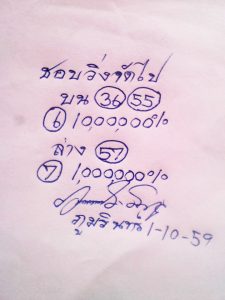 ชอบวิ่งจัดไป
บน 36 55
6 1,000,000%
ล่าง 57
7 1,000,000%
ภูมรินทร์ 1-10-59